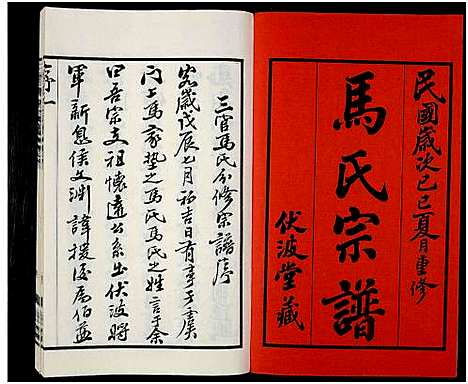 民國歲次己巳夏月重修
馬氏宗譜
伏波堂藏
三官馬氏分修宗譜序
歲戊辰七月初吉日有事于虞
門上馬家墊之馬氏馬氏之姓言于余
曰吾宗支祖懷遠公系出伏波將
軍新息侯文淵諱援後為伯益
序一